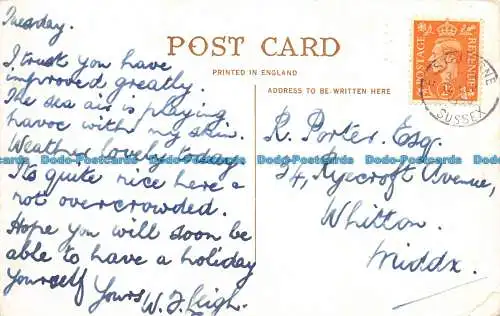 Tuesday.
I trust you have
improved greatly.
The sea air is playing
havoc with my skin.
Weather lovely today
Its quite nice here &
not overcrowded.
Hope you will soon be
able to have a holiday
yourself Yours W. J. Leigh.
POST CARD
PRINTED IN ENGLAND
ADDRESS TO BE WRITTEN HERE
R. Porter. Esq.
24, Ryecroft Avenue,
Whitton.
Middx.
POSTAGE
REVENUE
SUSSEX
Dodo-Postcards Dodo-Postcards Dodo-Postcards Dodo-Postcards Dodo-Postcards